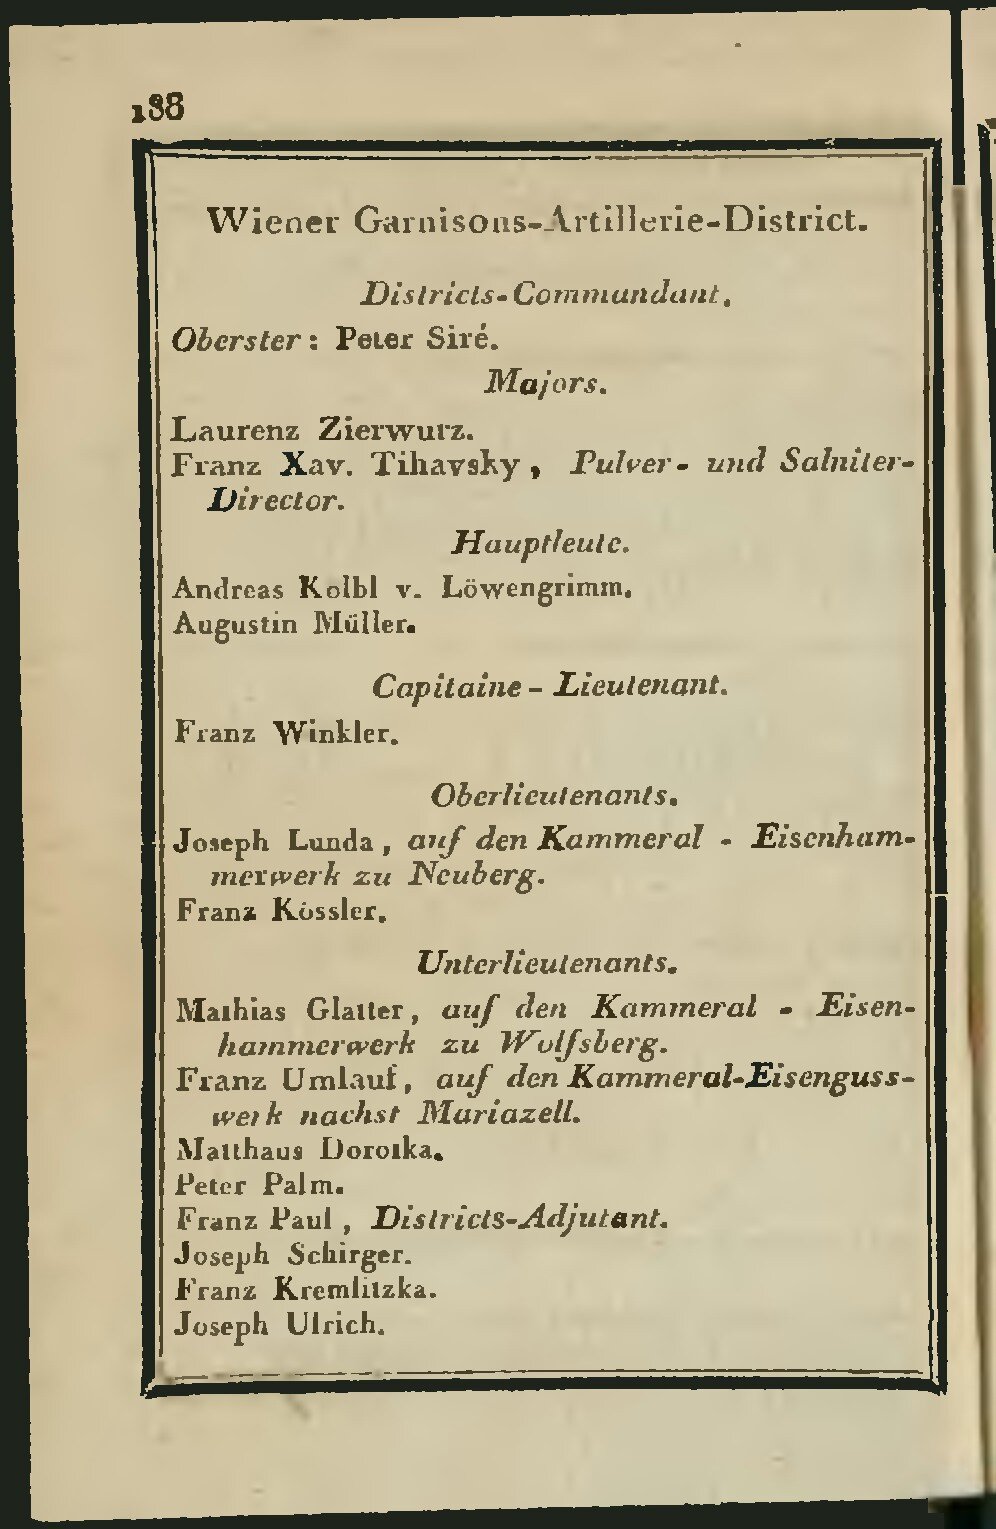 188
Wiener Garnisons-Artillerie-District.
Districts-Commandant.
Oberster: Peter Siré.
Majors.
Laurenz Zierwurz.
Franz Xav. Tihavsky, Pulver- und Salniter-
Director.
Hauptleute.
Andreas Kolbl v. Löwengrimm.
Augustin Müller.
Capitaine-Lieutenant.
Franz Winkler.
Oberlieutenants.
Joseph Lunda, auf den Kammeral-Eisenham-
merwerk zu Neuberg.
Franz Kössler.
Unterlieutenants.
Mathias Glatter, auf den Kammeral-Eisen-
hammerwerk zu Wolfsberg.
Franz Umlauf, auf den Kammeral-Eisenguss-
werk nachst Mariazell.
Matthaus Dorotka.
Peter Palm.
Franz Paul, Districts-Adjutant.
Joseph Schirger.
Franz Kremlitzka.
Joseph Ulrich.